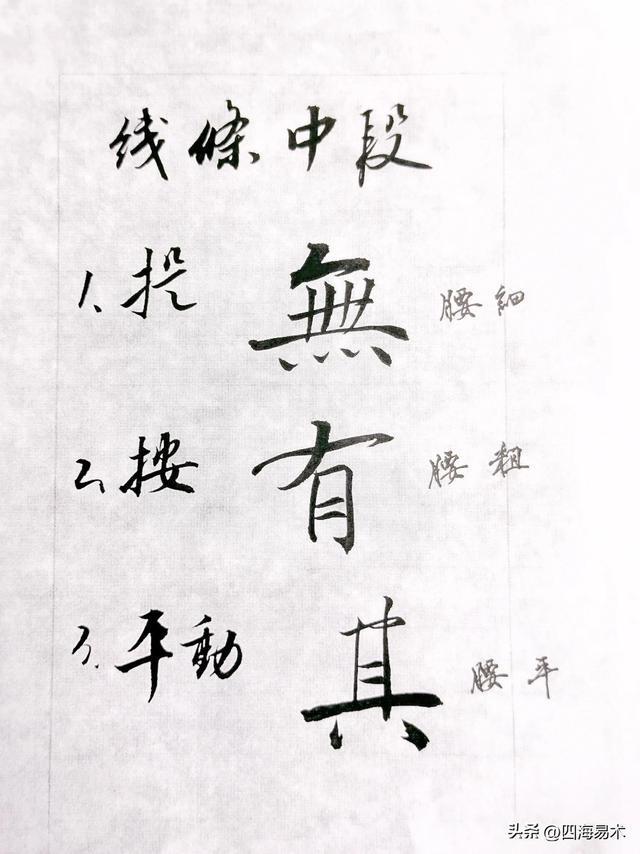 线條中段
1、提 無 腰細
2、按 有 腰粗
3、平動 其 腰平
头条 @四海易木